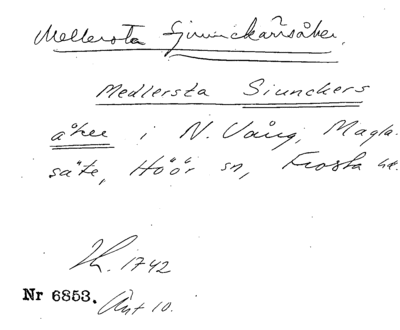 Mellersta Sjunckaråker.
Medlersta Siunckers
åker i N. Vång, Magla-
säte, Höör sn, Frosta hd.
1742
Nr 6853. Akt 10.